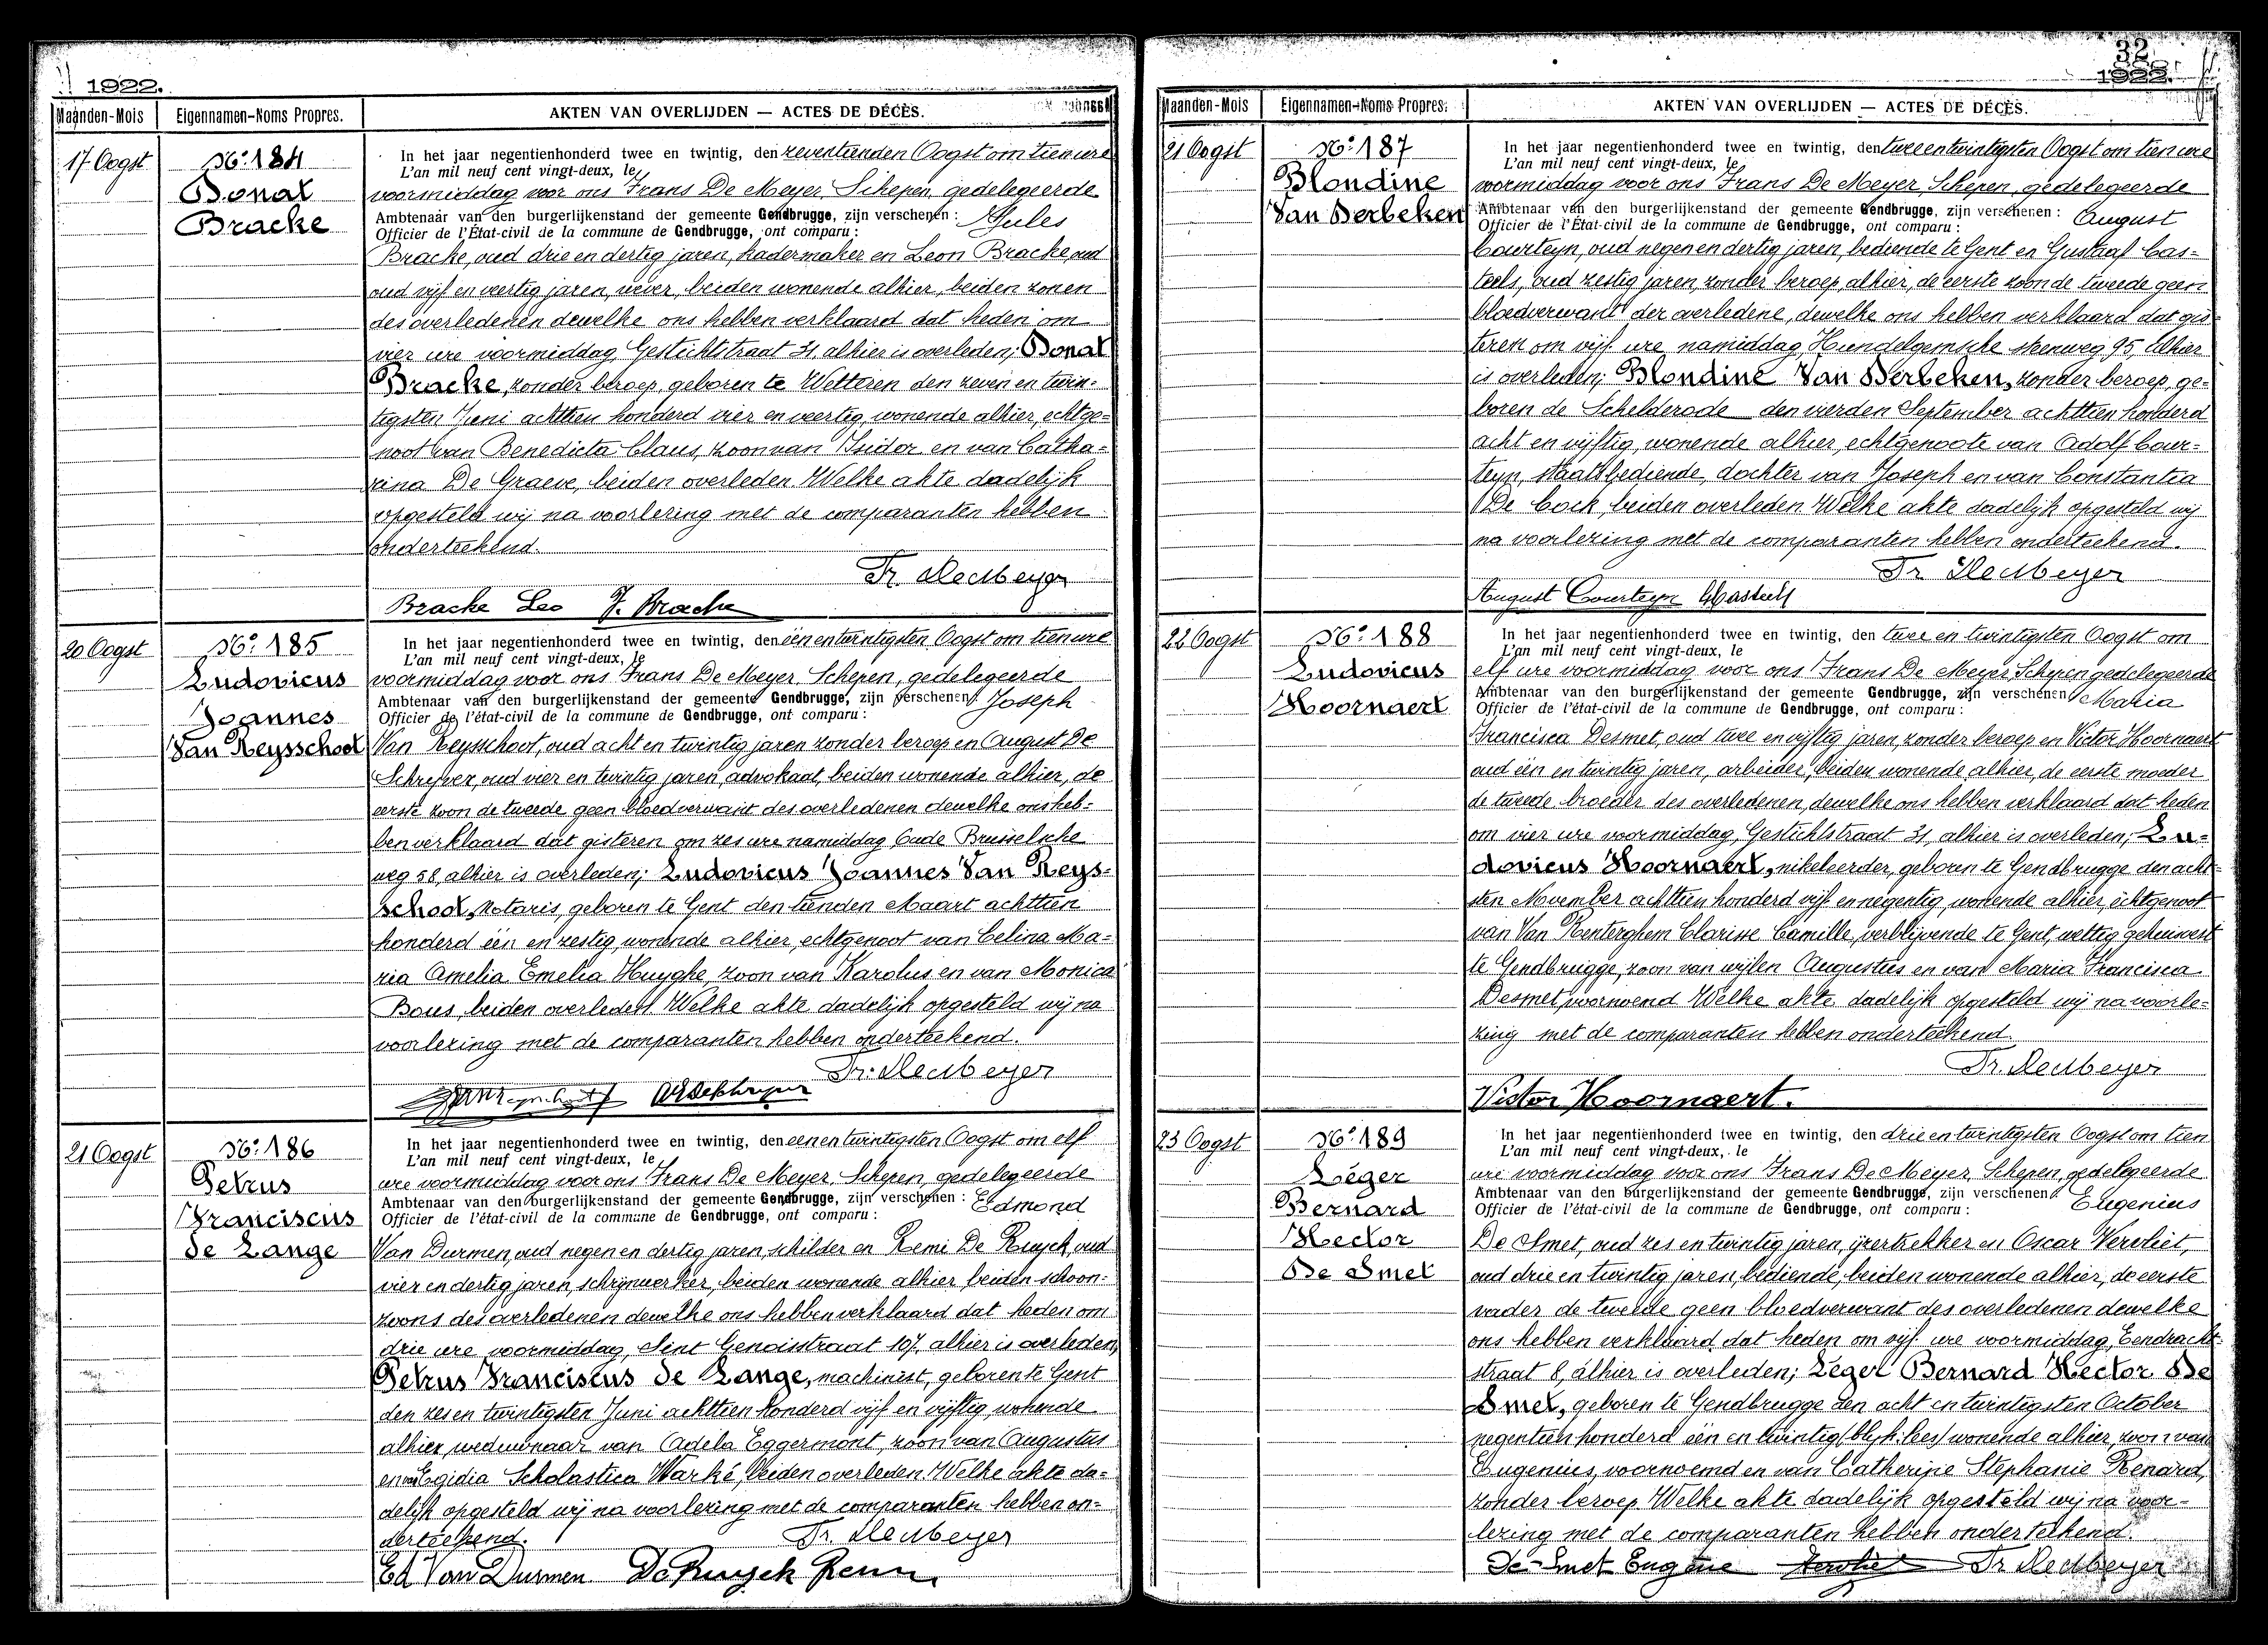 1922.
Maanden-Mois Eigennamen-Noms Propres. AKTEN VAN OVERLIJDEN — ACTES DE DÉCÈS.
17 Oogst
No. 184
Donat
Bracke
In het jaar negentienhonderd twee en twintig, den zeventienden Oogst om tien ure
L'an mil neuf cent vingt-deux, le
voormiddag voor ons Frans De Meyer, Schepen, gedelegeerde
Ambtenaar van den burgerlijkenstand der gemeente Gendbrugge, zijn verschenen : Jules
Officier de l'État-civil de la commune de Gendbrugge, ont comparu :
Bracke, oud drie en dertig jaren, kadermaker en Leon Bracke, oud
oud vijf en veertig jaren, wever, beiden wonende alhier, beiden zonen
des overledenen dewelke ons hebben verklaard dat heden om
vier ure voormiddag, Gestichtstraat 31, alhier is overleden; Donat
Bracke, zonder beroep, geboren te Wetteren den zeven en twin-
tigsten Juni achttien honderd vier en veertig, wonende alhier, echtge-
noot van Benedicta Claus, zoon van Isidor en van Catha-
rina De Graeve, beiden overleden. Welke akte dadelijk
opgesteld wij na voorlezing met de comparanten hebben
onderteekend.
Fr. De Meyer
Bracke Leo J. Bracke
20 Oogst
No. 185
Ludovicus
Joannes
Van Reysschoot
In het jaar negentienhonderd twee en twintig, den één en twintigsten Oogst om tien ure
L'an mil neuf cent vingt-deux, le
voormiddag voor ons Frans De Meyer, Schepen, gedelegeerde
Ambtenaar van den burgerlijkenstand der gemeente Gendbrugge, zijn verschenen : Joseph
Officier de l'état-civil de la commune de Gendbrugge, ont comparu :
Van Reysschoot, oud acht en twintig jaren zonder beroep en August De
Schryver, oud vier en twintig jaren, advokaat, beiden wonende alhier, de
eerste zoon de tweede geen bloedverwant des overledenen dewelke ons heb-
ben verklaard dat gisteren om zes ure namiddag Oude Brusselsche
weg 58, alhier is overleden; Ludovicus Joannes Van Reys-
schoot, Notaris, geboren te Gent den tienden Maart achttien
honderd één en zestig, wonende alhier, echtgenoot van Celina Ma-
ria Amelia Emelia Huyghe, zoon van Karolus en van Monica
Bous, beiden overleden. Welke akte dadelijk opgesteld wij na
voorlezing met de comparanten hebben onderteekend.
Fr. De Meyer
21 Oogst
No. 186
Petrus
Franciscus
de Lange
In het jaar negentienhonderd twee en twintig, den een en twintigsten Oogst om elf
L'an mil neuf cent vingt-deux, le
ure voormiddag voor ons Frans De Meyer, Schepen, gedelegeerde
Ambtenaar van den burgerlijkenstand der gemeente Gendbrugge, zijn verschenen : Edmond
Officier de l'état-civil de la commune de Gendbrugge, ont comparu :
Van Durmen, oud negen en dertig jaren, schilder en Remi De Ruyck, oud
vier en dertig jaren, schrijnwerker, beiden wonende alhier beiden schoon-
zoons des overledenen dewelke ons hebben verklaard dat heden om
drie ure voormiddag, Sint Genoisstraat 107, alhier is overleden,
Petrus Franciscus de Lange, machinist, geboren te Gent
den zes en twintigsten Juni achttien honderd vijf en vijftig, wonende
alhier, weduwnaar van Adela Eggermont, zoon van Augustus
en van Egidia Scholastica Warké, beiden overleden. Welke akte da-
delijk opgesteld wij na voorlezing met de comparanten hebben on-
derteekend.
Fr. De Meyer
Ed Van Durmen De Ruyck Remi
32
1922.
Maanden-Mois Eigennamen-Noms Propres. AKTEN VAN OVERLIJDEN — ACTES DE DÉCÈS.
21 Oogst
No. 187
Blondine
Van Derbeken
In het jaar negentienhonderd twee en twintig, den twee en twintigsten Oogst om tien ure
L'an mil neuf cent vingt-deux, le
voormiddag voor ons Frans De Meyer, Schepen, gedelegeerde
Ambtenaar van den burgerlijkenstand der gemeente Gendbrugge, zijn verschenen : August
Officier de l'État-civil de la commune de Gendbrugge, ont comparu :
Courteyn, oud negen en dertig jaren, bediende te Gent en Gustaaf Cas-
teels, oud zestig jaren, zonder beroep, alhier, de eerste zoon de tweede geen
bloedverwant der overledene, dewelke ons hebben verklaard dat gis-
teren om vijf ure namiddag, Hundelgemsche steenweg 95, alhier
is overleden; Blondine Van Derbeken, zonder beroep, ge-
boren de Schelderode den vierden September achttien honderd
acht en vijftig, wonende alhier, echtgenoote van Adolf Cour-
teyn, staatsbediende, dochter van Joseph en van Constantia
De Cock, beiden overleden. Welke akte dadelijk opgesteld wij
na voorlezing met de comparanten hebben onderteekend.
Fr. De Meyer
August Courteyn GCasteels
22 Oogst
No. 188
Ludovicus
Hoornaert
In het jaar negentienhonderd twee en twintig, den twee en twintigsten Oogst om
L'an mil neuf cent vingt-deux, le
elf ure voormiddag voor ons Frans De Meyer, Schepen gedelegeerde
Ambtenaar van den burgerlijkenstand der gemeente Gendbrugge, zijn verschenen : Maria
Officier de l'état-civil de la commune de Gendbrugge, ont comparu :
Francisca Desmet, oud twee en vijftig jaren, zonder beroep en Victor Hoornaert
oud één en twintig jaren, arbeider, beiden wonende alhier, de eerste moeder
de tweede broeder des overledenen, dewelke ons hebben verklaard dat heden
om vier ure voormiddag, Gestichtstraat 31, alhier is overleden; Lu-
dovicus Hoornaert, nikeleerder, geboren te Gendbrugge den acht-
sten November achttien honderd vijf en negentig, wonende alhier, echtgenoot
van Van Renterghem Clarisse Camille, verblijvende te Gent, wettig gehuisvest
te Gendbrugge, zoon van wijlen Augustus en van Maria Francisca
Desmet, voornoemd Welke akte dadelijk opgesteld wij na voorle-
zing met de comparanten hebben onderteekend.
Fr. De Meyer
Victor Hoornaert.
23 Oogst
No. 189
Léger
Bernard
Hector
De Smet
In het jaar negentienhonderd twee en twintig, den drie en twintigsten Oogst om tien
L'an mil neuf cent vingt-deux, le
ure voormiddag voor ons Frans De Meyer, Schepen, gedelegeerde
Ambtenaar van den burgerlijkenstand der gemeente Gendbrugge, zijn verschenen : Eugenius
Officier de l'état-civil de la commune de Gendbrugge, ont comparu :
De Smet, oud zes en twintig jaren, ijzertrekker en Oscar Vervliet,
oud drie en twintig jaren, bediende, beiden wonende alhier, de eerste
vader de tweede geen bloedverwant des overledenen dewelke
ons hebben verklaard dat heden om vijf ure voormiddag, Eendracht-
straat 8, alhier is overleden; Léger Bernard Hector De
Smet, geboren te Gendbrugge den acht en twintigsten October
negentien honderd één en twintig (blijk: lees) wonende alhier, zoon van
Eugenius, voornoemd en van Catherine Stephanie Renard,
zonder beroep. Welke akte dadelijk opgesteld wij na voor-
lezing met de comparanten hebben onderteekend.
De Smet Eugène Vervliet Fr. De Meyer